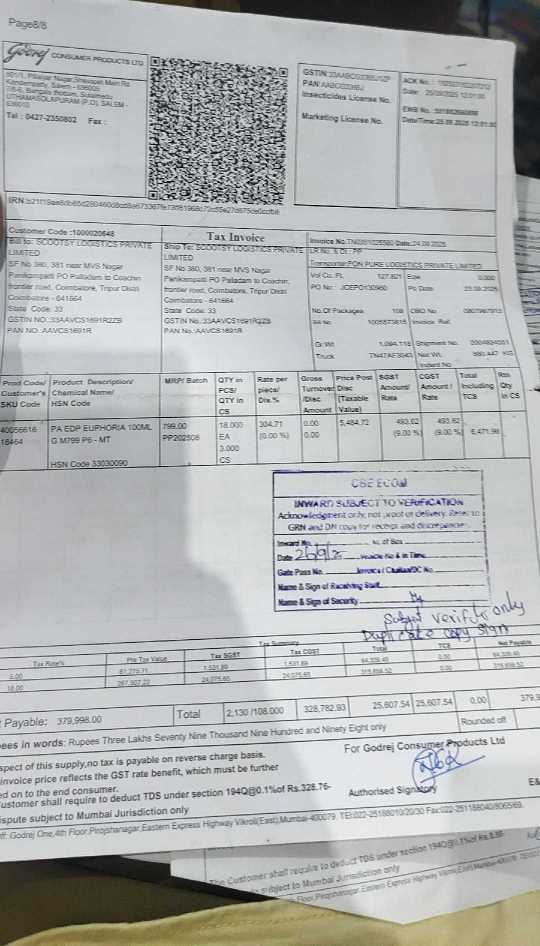 Page8/8
Godrej CONSUMER PRODUCTS LTD
Kandampatty, Salem - 636005
UTHAMASOLAPURAM (P.O), SALEM -
636010
Tel : 0427-2350802 Fax :
GSTIN
PAN
Insecticides License No.
Marketing License No.
ACK No. :
Date: 25/09/2025 12:01:00
EWB No. :
Date/Time:25.09.2025 12:01:00
Customer Code :1000020648
Tax Invoice
Bill to: SCOOTSY LOGISTICS PRIVATE
LIMITED
SF No 380, 381 near MVS Nagar
Panikampatti PO Palladam to Cochin
frontier road, Coimbatore, Tripur Distri
Coimbatore - 641664
State Code: 33
GSTIN NO.:33AAVCS1691R2ZB
PAN NO.:AAVCS1691R
Ship To: SCOOTSY LOGISTICS PRIVATE
LIMITED
SF No 380, 381 near MVS Nagar
Panikampatti PO Palladam to Cochin,
frontier road, Coimbatore, Tripur Distri
Coimbatore - 641664
State Code: 33
GSTIN No.:33AAVCS1691R2ZB
PAN No.:AAVCS1691R
Invoice No. Date: 24.09.2025
Transporter:FON PURE LOGISTICS PRIVATE LIMITED
Vol Cu. Ft. 127.821 0.000
PO No : JCEPO130960 Po Date 23.09.2025
No.Of Packages 108 OBD No
Invoice Ref.
Gr.Wt 1,094.118 Shipment No.
Truck TN47AF3043 Net Wt. 980.447 KG
Indent No
Prod Code/ Customer's SKU Code
Product Description/ Chemical Name/ HSN Code
MRP/ Batch
QTY in PCS/ QTY in CS
Rate per piece/ Dis.%
Gross Turnover /Disc Amount
Price Post Disc (Taxable Value)
SGST Amount/ Rate
CGST Amount / Rate
Total Including TCS
Qty in CS
40056616 PA EDP EUPHORIA 100ML 799.00 18.000 304.71 0.00 5,484.72 493.62 493.62 6,471.96
18464 G M799 P6 - MT PP202508 EA (0.00 %) 0.00 (9.00 %) (9.00 %)
3.000
HSN Code 33030090 CS
INWARD SUBJECT TO VERIFICATION
Acknowledgment only, not proof of delivery. Refer to
GRN and DN copy for receipt and discrepancies.
Inward No. No. of Box
Date 26/9/2 Vehicle No & In Time
Gate Pass No.
Name & Sign of Receiving Staff
Name & Sign of Security
Subject verify only
Duplicate copy sign
Tax Summary
Tax Rate% Pre Tax Value Tax SGST Tax CGST Total TCS Net Payable
5.00 61,275.71 1,531.89 1,531.89 64,339.49 0.00
18.00 267,507.22 24,075.65 24,075.65 315,658.52 0.00
Payable: 379,998.00 Total 2,130 /108.000 328,782.93 25,607.54 25,607.54 0.00 379,9
Rounded off
ees in words: Rupees Three Lakhs Seventy Nine Thousand Nine Hundred and Ninety Eight only
spect of this supply,no tax is payable on reverse charge basis.
invoice price reflects the GST rate benefit, which must be further
ed on to the end consumer.
ustomer shall require to deduct TDS under section 194Q@0.1%of Rs.328.76-
ispute subject to Mumbai Jurisdiction only
For Godrej Consumer Products Ltd
Authorised Signatory
E&
ff: Godrej One,4th Floor,Pirojshanagar,Eastern Express Highway Vikroli(East),Mumbai-400079. TEl:022-25188010/20/30 Fax:022-25188040/8065/69.
The Customer shall require to deduct TDS under section 194Q@0.1%of
subject to Mumbai Jurisdiction only
Floor,Pirojshanagar,Eastern Express Highway Vikroli(East),Mumbai-400079.